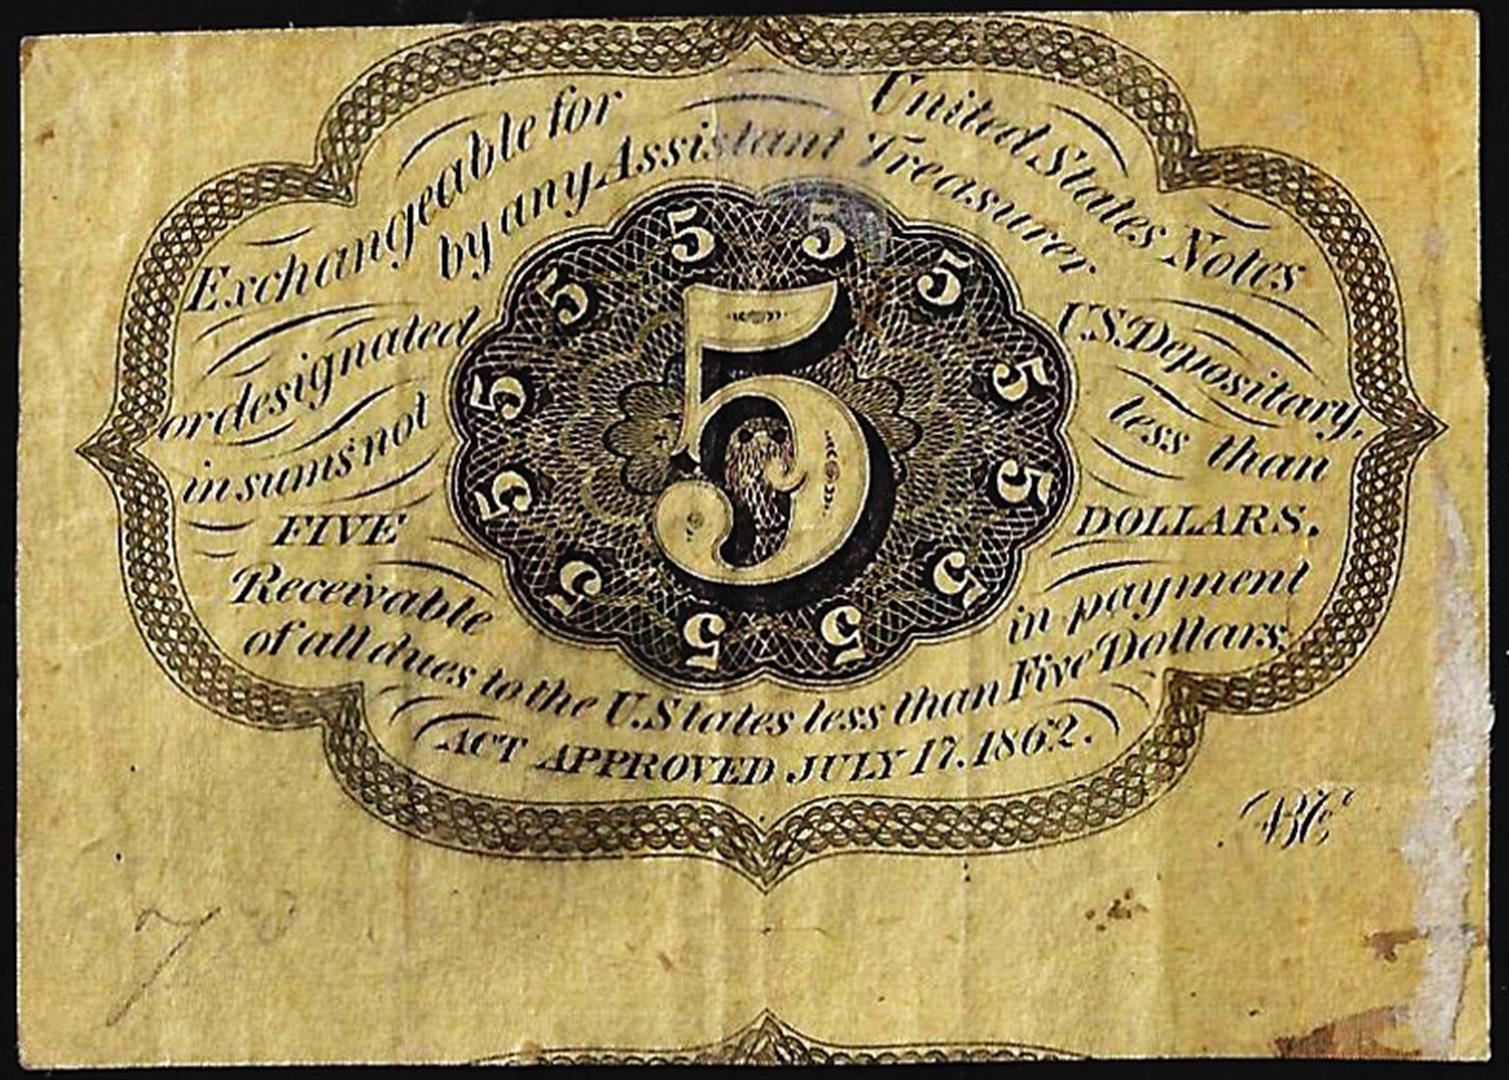 Exchangeable for United States Notes
by any Assistant Treasurer
or designated U.S. Depositary,
in sums not less than
FIVE DOLLARS.
Receivable in payment
of all dues to the U. States less than Five Dollars,
ACT APPROVED JULY 17. 1862.
5
5
5
5
5
5
5
5
5
5
5
5
5
ABCo
7